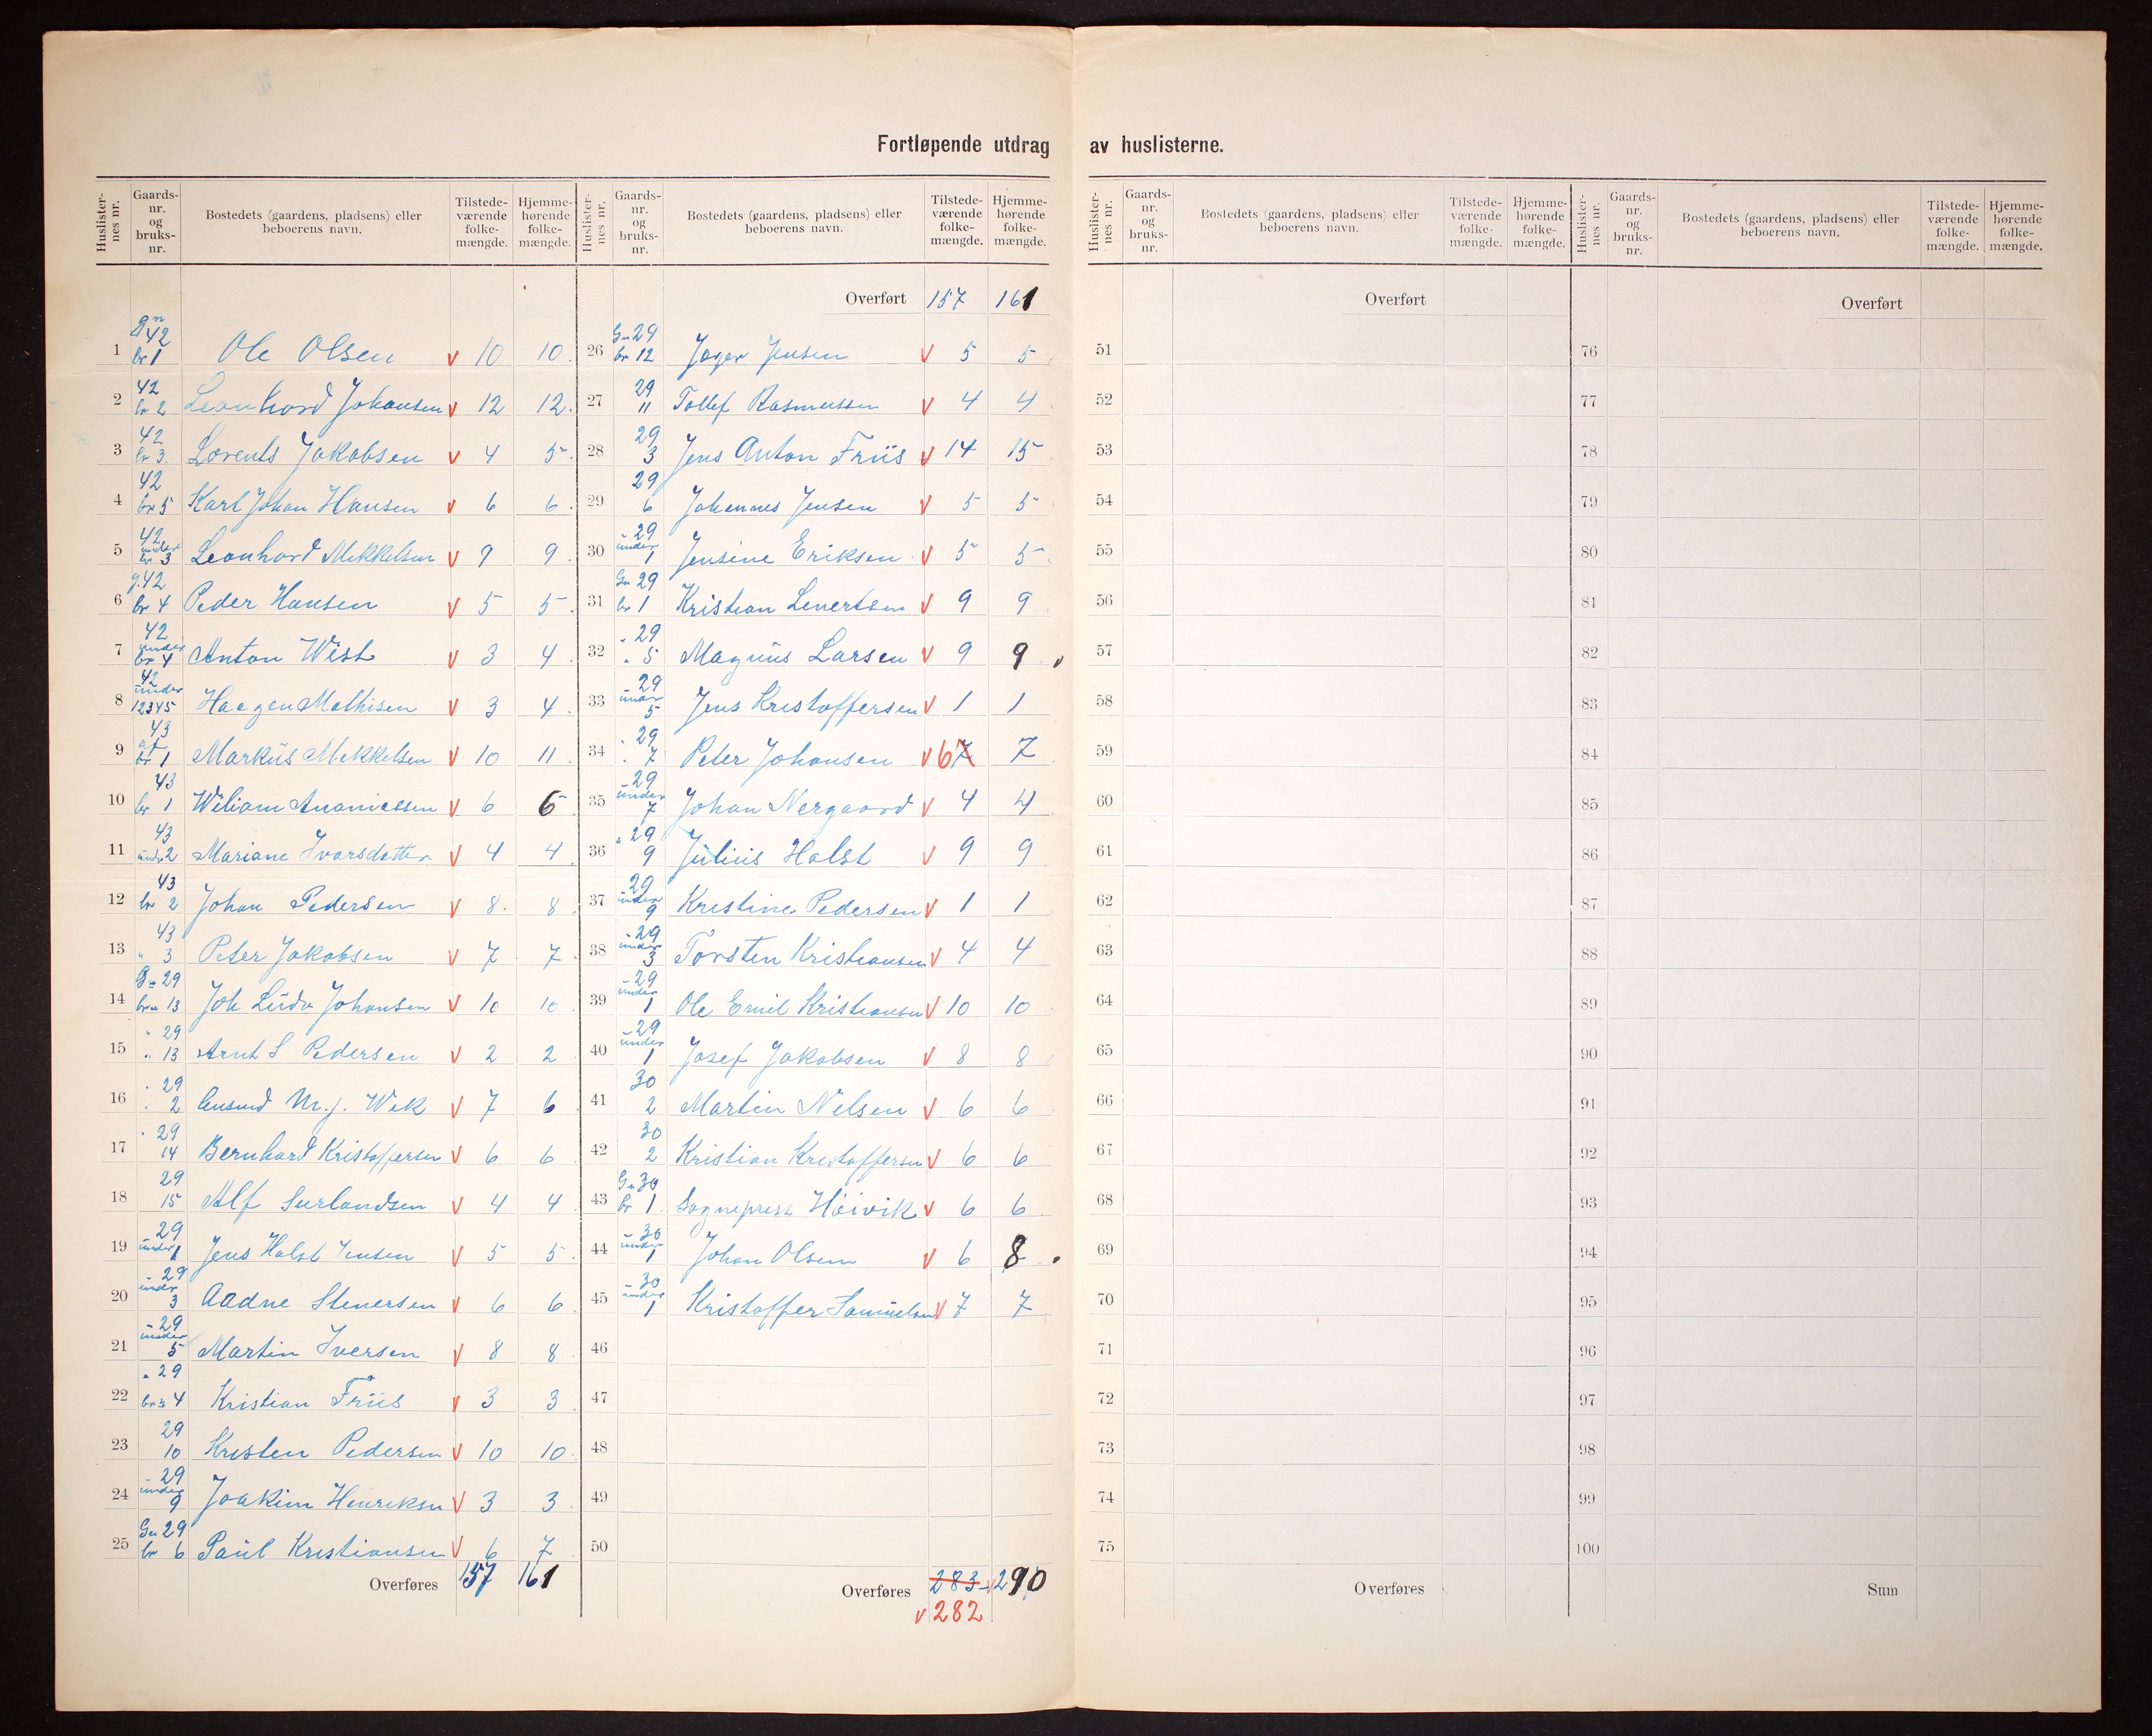 Fortløpende utdrag av huslisterne.
Huslister-nes nr. | Gaards-nr. og bruks-nr. | Bostedets (gaardens, pladsens) eller beboerens navn. | Tilstede-værende folke-mængde. | Hjemme-hørende folke-mængde.
1 | gn 42 br 1 | Ole Olsen | v 10 | 10
2 | 42 br 2 | Leonhard Johansen | v 12 | 12
3 | 42 br 3 | Lorents Jakobsen | v 4 | 5
4 | 42 br 5 | Karl Johan Hansen | v 6 | 6
5 | 42 under br 3 | Leonhard Mikkelsen | v 9 | 9
6 | g. 42 br 4 | Peder Hansen | v 5 | 5
7 | 42 under br 4 | Anton Wist | v 3 | 4
8 | 42 under 12345 | Haagen Mathisen | v 3 | 4
9 | 43 br 1 | Markus Mikkelsen | v 10 | 11
10 | 43 br 1 | Wiliam Ananiassen | v 6 | 6
11 | 43 under 2 | Mariane Ivarsdatter | v 4 | 4
12 | 43 br 2 | Johan Pedersen | v 8 | 8
13 | 43 " 3 | Peter Jakobsen | v 7 | 7
14 | Gn 29 brn 13 | Joh Ludv Johansen | v 10 | 10
15 | " 29 " 13 | Arnt S Pedersen | v 2 | 2
16 | " 29 " 2 | M. J. Wik | v 7 | 6
17 | " 29 14 | Bernhard Kristoffersen | v 6 | 6
18 | 29 15 | Alf Surlandsen | v 4 | 4
19 | 29 under 1 | Jens Holst Jensen | v 5 | 5
20 | - 29 under 3 | Aadne Stenersen | v 6 | 6
21 | - 29 under 5 | Martin Iversen | v 8 | 8
22 | " 29 brn 4 | Kristian Friis | v 3 | 3
23 | 29 10 | Kristen Pedersen | v 10 | 10
24 | - 29 under 9 | Joakim Henriksen | v 3 | 3
25 | Gn 29 br 6 | Paul Kristiansen | v 6 | 7
Overføres | 157 | 161
Huslister-nes nr. | Gaards-nr. og bruks-nr. | Bostedets (gaardens, pladsens) eller beboerens navn. | Tilstede-værende folke-mængde. | Hjemme-hørende folke-mængde.
Overført | 157 | 161
26 | Gn 29 br 12 | Jager Jensen | v 5 | 5
27 | 29 11 | Tollef Rasmussen | v 4 | 4
28 | 29 3 | Jens Anton Friis | v 14 | 15
29 | 29 6 | Johannes Jensen | v 5 | 5
30 | - 29 under 1 | Jensine Eriksen | v 5 | 5
31 | Gn 29 br 1 | Kristian Lenertsen | v 9 | 9
32 | " 29 " 5 | Magnus Larsen | v 9 | 9
33 | 29 under 5 | Jens Kristoffersen | v 1 | 1
34 | " 29 " 7 | Peter Johansen | v 6 7 | 7
35 | - 29 under 7 | Johan Nergaard | v 4 | 4
36 | " 29 9 | Julius Holst | v 9 | 9
37 | 29 under 9 | Kristine Pedersen | v 1 | 1
38 | - 29 under 3 | Torsten Kristiansen | v 4 | 4
39 | - 29 under 1 | Ole Emil Kristiansen | v 10 | 10
40 | - 29 under 1 | Josef Jakobsen | v 8 | 8
41 | 30 2 | Martin Nilsen | v 6 | 6
42 | 30 2 | Kristian Kristoffersen | v 6 | 6
43 | Gn 30 br 1 | Sogneprest Höivik | v 6 | 6
44 | - 30 under 1 | Johan Olsen | v 6 | 8
45 | - 30 under 1 | Kristoffer Samuelsen | v 7 | 7
46
47
48
49
50
Overføres | 283 | 290
v 282
Huslister-nes nr. | Gaards-nr. og bruks-nr. | Bostedets (gaardens, pladsens) eller beboerens navn. | Tilstede-værende folke-mængde. | Hjemme-hørende folke-mængde.
Overført
51
52
53
54
55
56
57
58
59
60
61
62
63
64
65
66
67
68
69
70
71
72
73
74
75
Overføres
Huslister-nes nr. | Gaards-nr. og bruks-nr. | Bostedets (gaardens, pladsens) eller beboerens navn. | Tilstede-værende folke-mængde. | Hjemme-hørende folke-mængde.
Overført
76
77
78
79
80
81
82
83
84
85
86
87
88
89
90
91
92
93
94
95
96
97
98
99
100
Sum